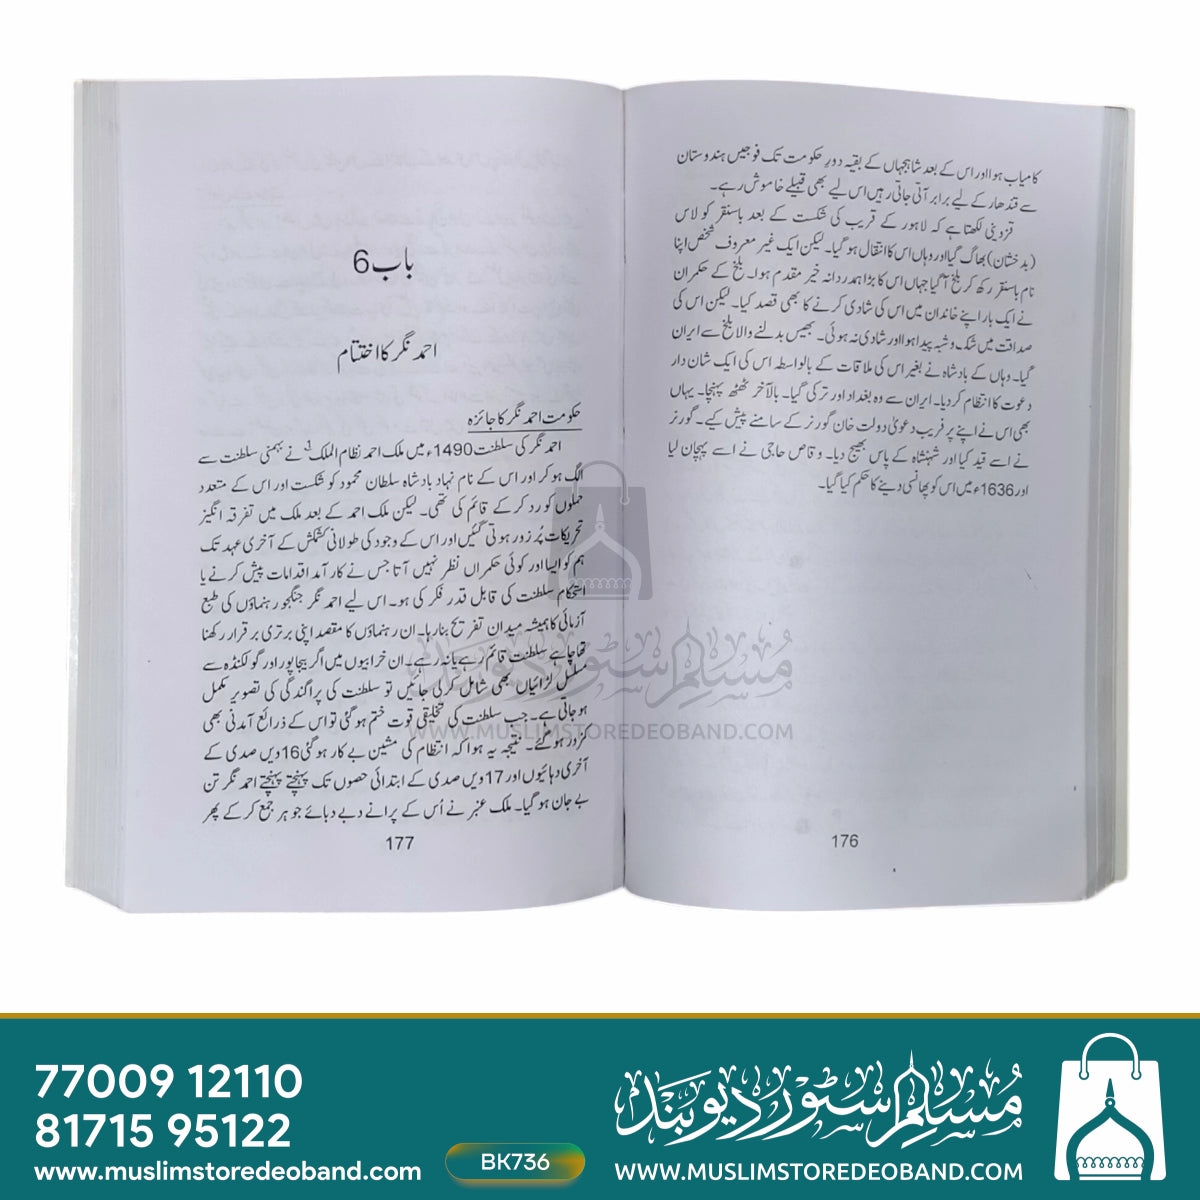 کامیاب ہوا اور اس کے بعد شاہجہاں کے بقیہ دور حکومت تک فوجیں ہندوستان
سے قندھار کے لیے برابر آتی جاتی رہیں اس لیے بھی قبیلے خاموش رہے۔
قزوینی لکھتا ہے کہ لاہور کے قریب کی شکست کے بعد باسنقر کو لاس
(بدخشان) بھاگ گیا اور وہاں اس کا انتقال ہو گیا۔ لیکن ایک غیر معروف شخص اپنا
نام باسنقر رکھ کر بلخ آ گیا جہاں اس کا بڑا ہمدردانہ خیر مقدم ہوا۔ بلخ کے حکمران
نے ایک بار اپنے خاندان میں اس کی شادی کرنے کا بھی قصد کیا۔ لیکن اس کی
صداقت میں شک و شبہ پیدا ہوا اور شادی نہ ہوئی۔ بھیس بدلنے والا بلخ سے ایران
گیا۔ وہاں کے بادشاہ نے بغیر اس کی ملاقات کے بالواسطہ اس کی ایک شان دار
دعوت کا انتظام کر دیا۔ ایران سے وہ بغداد اور ترکی گیا۔ بالآخر ٹھٹھہ پہنچا۔ یہاں
بھی اس نے اپنے پر فریب دعویٰ دولت خان گورنر کے سامنے پیش کیے۔ گورنر
نے اسے قید کیا اور شہنشاہ کے پاس بھیج دیا۔ وقاص حاجی نے اسے پہچان لیا
اور 1636ء میں اس کو پھانسی دینے کا حکم کیا گیا۔
176
باب 6
احمد نگر کا اختتام
حکومت احمد نگر کا جائزہ
احمد نگر کی سلطنت 1490ء میں ملک احمد نظام الملک نے بہمنی سلطنت سے
الگ ہو کر اور اس کے نام نہاد بادشاہ سلطان محمود کو شکست اور اس کے متعدد
حملوں کو رد کر کے قائم کی تھی۔ لیکن ملک احمد کے بعد ملک میں تفرقہ انگیز
تحریکات پُر زور ہوتی گئیں اور اس کے وجود کی طولانی کشمکش کے آخری عہد تک
ہم کو ایسا اور کوئی حکمراں نظر نہیں آتا جس نے کار آمد اقدامات پیش کرنے یا
استحکام سلطنت کی قابل قدر فکر کی ہو۔ اس لیے احمد نگر جنگجو رہنماؤں کی طبع
آزمائی کا ہمیشہ میدان تفریح بنا رہا۔ ان رہنماؤں کا مقصد اپنی برتری برقرار رکھنا
تھا چاہے سلطنت قائم رہے یا نہ رہے۔ ان خرابیوں میں اگر بیجاپور اور گولکنڈہ سے
مسلسل لڑائیاں بھی شامل کر لی جائیں تو سلطنت کی پراگندگی کی تصویر مکمل
ہو جاتی ہے۔ جب سلطنت کی تخلیقی قوت ختم ہو گئی تو اس کے ذرائع آمدنی بھی
کمزور ہو گئے۔ نتیجہ یہ ہوا کہ انتظام کی مشین بے کار ہو گئی 16ویں صدی کے
آخری دہائیوں اور 17ویں صدی کے ابتدائی حصوں تک پہنچتے پہنچتے احمد نگر تن
بے جان ہو گیا۔ ملک عنبر نے اُس کے پرانے دبے دبائے جوہر جمع کر کے پھر
177
مسلم سٹور دیوبند
WWW.MUSLIMSTOREDEOBAND.COM
77009 12110
81715 95122
www.muslimstoredeoband.com
BK736
مسلم سٹور دیوبند
WWW.MUSLIMSTOREDEOBAND.COM